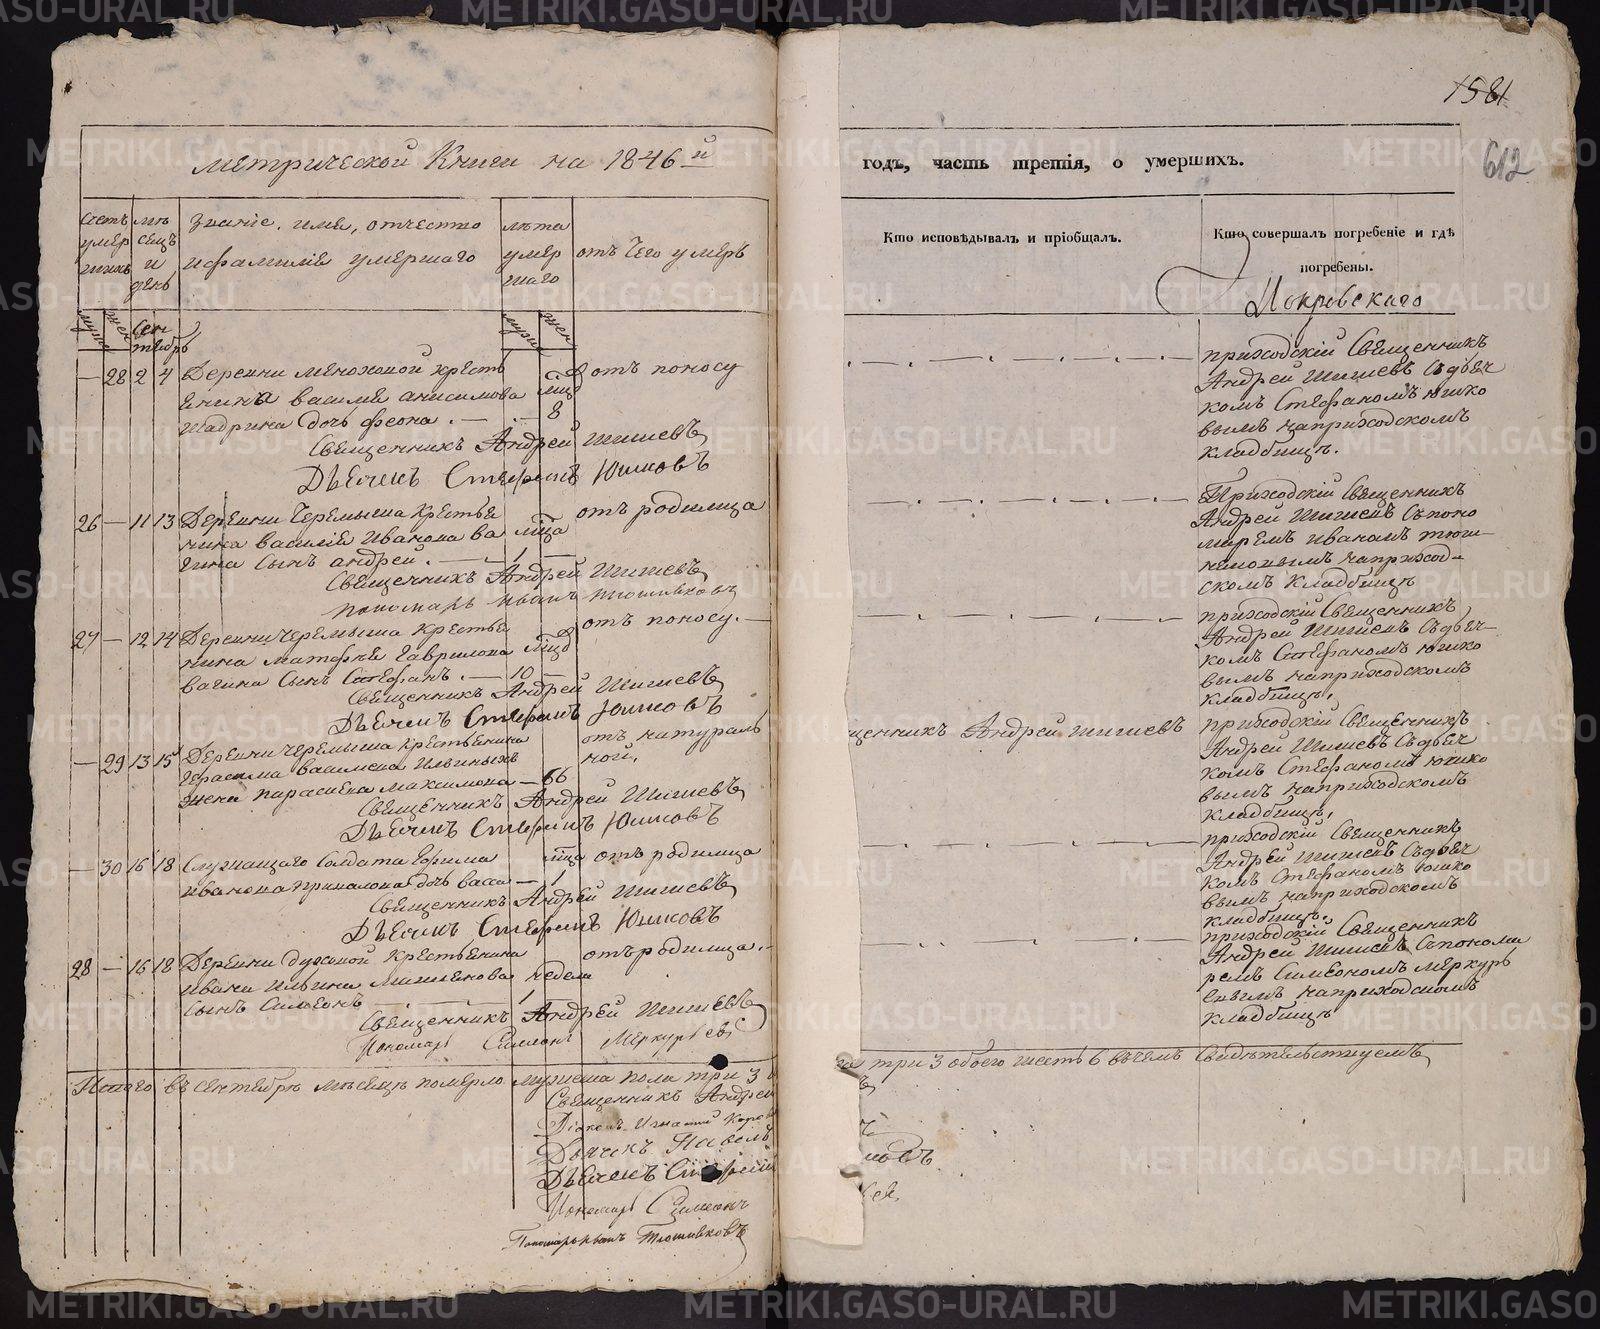 1581
612
метрической Книги на 1846-й
годъ, часть третія, о умершихъ.
Счетъ умершихъ
мѣсецъ и день
Званіе, имя, отчество
и фамилія умершаго
лѣта умершаго
отъ чего умеръ
Кто исповѣдывалъ и пріобщалъ.
Кто совершалъ погребеніе и гдѣ
погребены.
Покровскаго
мужс жен
Сентебрь
мужс жен
28 2 4 Деревни крестьенина василья анисимова
Шадрина дочь феона.
8
отъ поносу
Священникъ Андрей Шишевъ
Дьечекъ Стефанъ Юшковъ
приходскій Священникъ
Андрей Шишевъ Съдьечкомъ Стефаномъ Юшковымъ наприходскомъ
кладбищѣ.
26 11 13 Деревни Черемыша Крестьенина василія Иванова вагина Сынъ андрей.
1
отъ родимца
Священникъ Андрей Шишевъ
пономарь иванъ
Приходскій Священникъ
Андрей Шишевъ Съпономаремъ иваномъ
наприходскомъ Кладбищѣ
27 12 14 Деревни Черемыша Крестьенина матфѣя Гаврилова
вагина Сынъ Стефанъ.
10
отъ поносу.
Священникъ Андрей Шишевъ
Дьечекъ Стефанъ Юшковъ
приходскій Священникъ
Андрей Шишевъ Съдьечкомъ Стефаномъ Юшковымъ наприходскомъ
кладбищѣ.
29 13 15 Деревни Черемыша крестьенина
Герасима васильева Ильиныхъ
жена параскева максимова
66
отъ натуральной.
Священникъ Андрей Шишевъ
Дьечекъ Стефанъ Юшковъ
щенникъ Андрей Шишевъ
приходскій Священникъ
Андрей Шишевъ Съдьечкомъ Стефаномъ Юшковымъ наприходскомъ
кладбищѣ,
30 16 18 Служащаго Солдата Ефима
иванова дочь васса
1
отъ родимца
Священникъ Андрей Шишевъ
Дьечекъ Стефанъ Юшковъ
приходскій Священникъ
Андрей Шишевъ Съдьечкомъ Стефаномъ Юшковымъ наприходскомъ
кладбищѣ.
28 16 18 Деревни духовой Крестьенина
Ивана Ильина
Сынъ Симеонъ
неделя
1
отъ родимца.
Священникъ Андрей Шишевъ
Пономарь Симеонъ Меркурьевъ
приходскій Священникъ
Андрей Шишевъ Съпономаремъ Симеономъ Меркурьевымъ наприходскомъ
кладбищѣ
Итого въ Сентебрѣ мѣсецѣ померло мужеска пола три 3
три 3 обоего шесть 6 въчемъ Свидѣтельствуемъ
Священникъ Андрей
Діаконъ Игнатій
Дьячекъ Павелъ
Дьечекъ Стефанъ
Пономарь Симеонъ
Пономарь Иванъ
METRIKI.GASO-URAL.RU